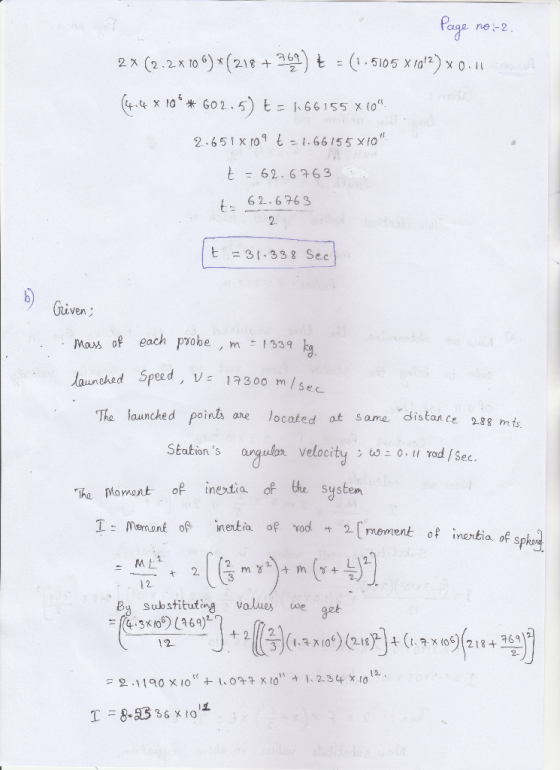 Page no:-2.
2 × (2.2×10⁶) × (218 + 769/2) t = (1.5105×10¹²) × 0.11
(4.4 × 10⁶ * 602.5) t = 1.66155 × 10¹¹
2.651×10⁹ t = 1.66155 ×10¹¹
t = 62.6763
t = 62.6763/2
t = 31.338 Sec
b) Given;
Mass of each probe, m = 1339 kg
launched Speed, V = 17300 m/sec
The launched points are located at same distance 288 mts.
Station's angular velocity; ω = 0.11 rad/sec.
The Moment of inertia of the system
I = Moment of inertia of rod + 2[moment of inertia of sphere]
= ML²/12 + 2[(2/3 m r²) + m (r + L/2)²]
By substituting values we get
= [(4.3×10⁶)(769)²/12] + 2[[(2/3)(1.7×10⁶)(218)²] + (1.7×10⁶)(218 + 769/2)²]
= 2.1190 × 10¹¹ + 1.077×10¹¹ + 1.234 × 10¹².
I = ×10¹²